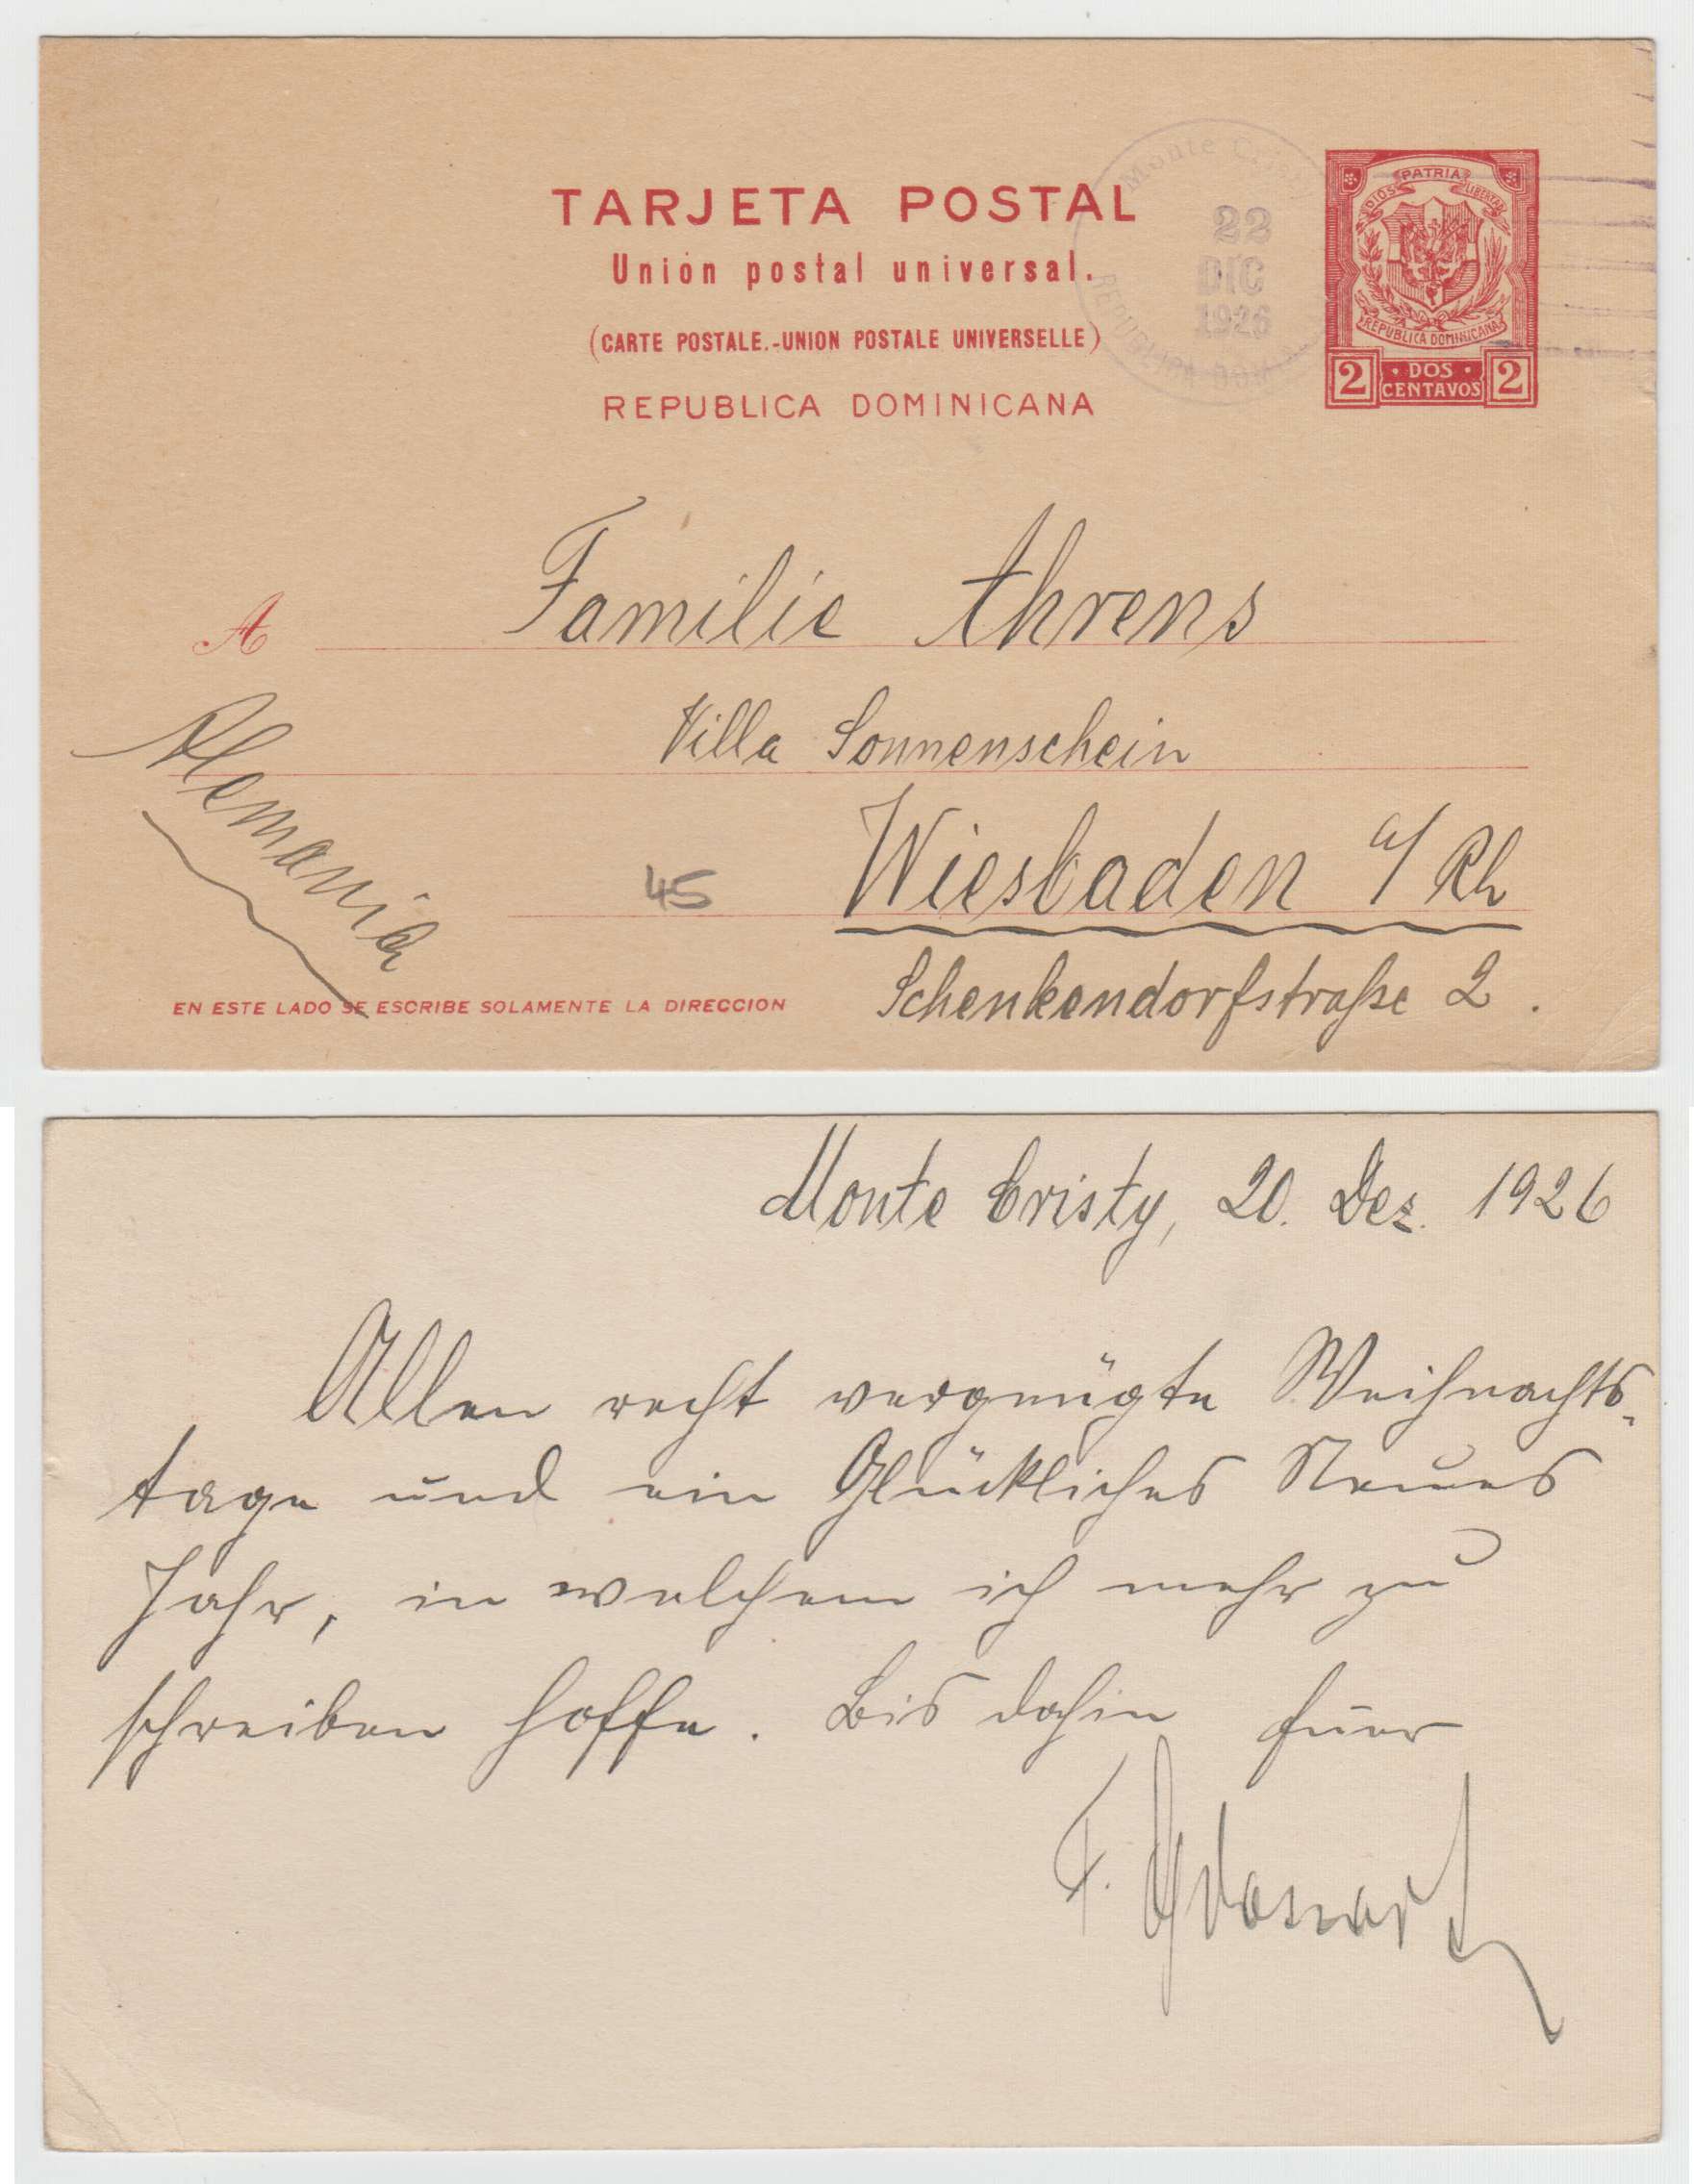 TARJETA POSTAL
Unión postal universal.
(CARTE POSTALE.-UNION POSTALE UNIVERSELLE)
REPUBLICA DOMINICANA
Monte Cristy
22
DIC
1926
REPUBLICA DOM
DIOS PATRIA LIBERTAD
REPUBLICA DOMINICANA
2 · DOS · 2
CENTAVOS
A Familie Ahrens
Villa Sonnenschein
Alemania
45
Wiesbaden a/Rh
EN ESTE LADO SE ESCRIBE SOLAMENTE LA DIRECCION
Schenkendorfstraße 2.
Monte Cristy, 20. Dez. 1926
Allen recht vergnügte Weihnachts-
tage und ein Glückliches Neues
Jahr, in welchem ich mehr zu
schreiben hoffe. Bis dahin Euer
F.